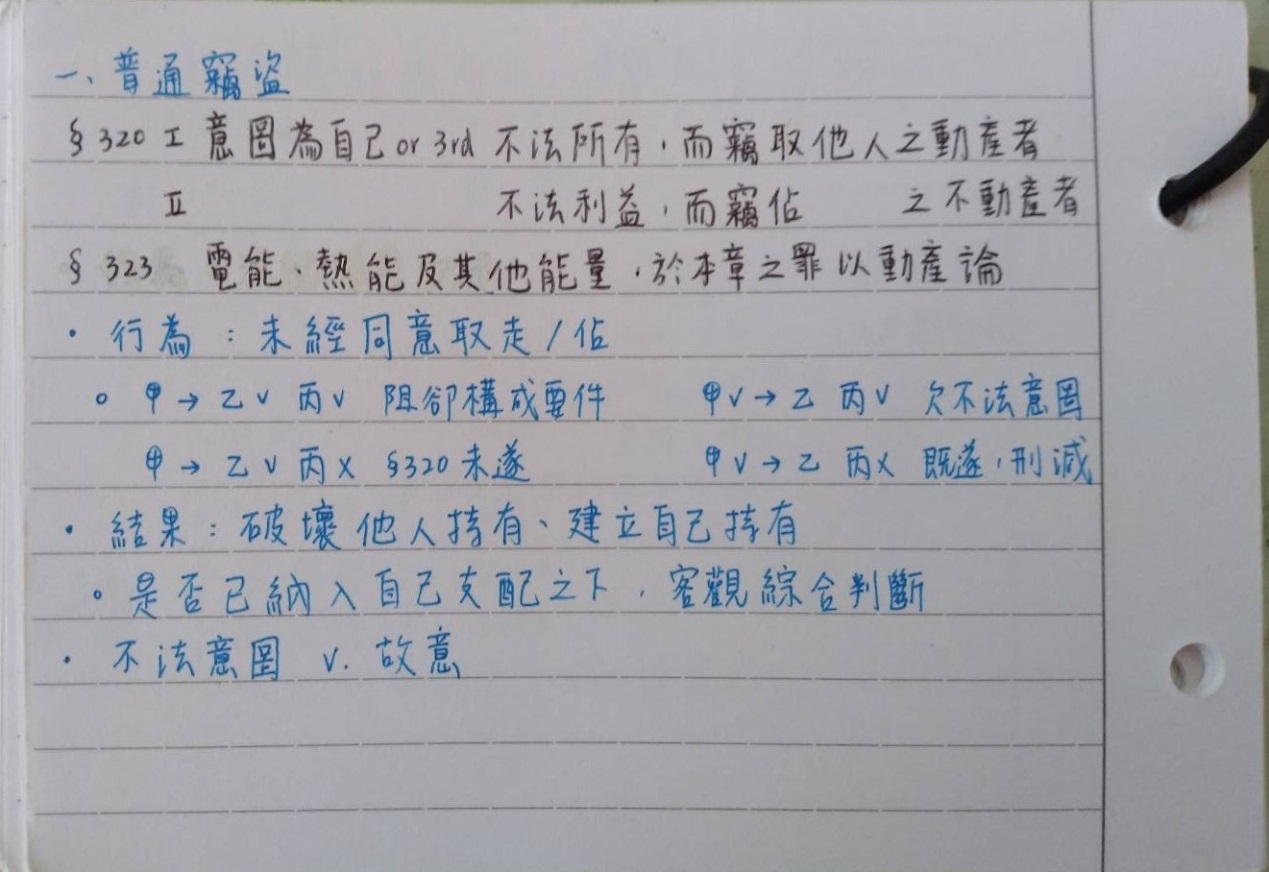 一、普通竊盜
§320 I 意圖為自己or 3rd 不法所有，而竊取他人之動產者
II 不法利益，而竊佔 之不動產者
§323 電能、熱能及其他能量，於本章之罪以動產論
• 行為：未經同意取走/佔
。甲→乙v 丙v 阻卻構成要件 甲v→乙 丙v 欠不法意圖
甲→乙v 丙x §320未遂 甲v→乙 丙x 既遂，刑減
• 結果：破壞他人持有、建立自己持有
。是否已納入自己支配之下，客觀綜合判斷
• 不法意圖 v. 故意